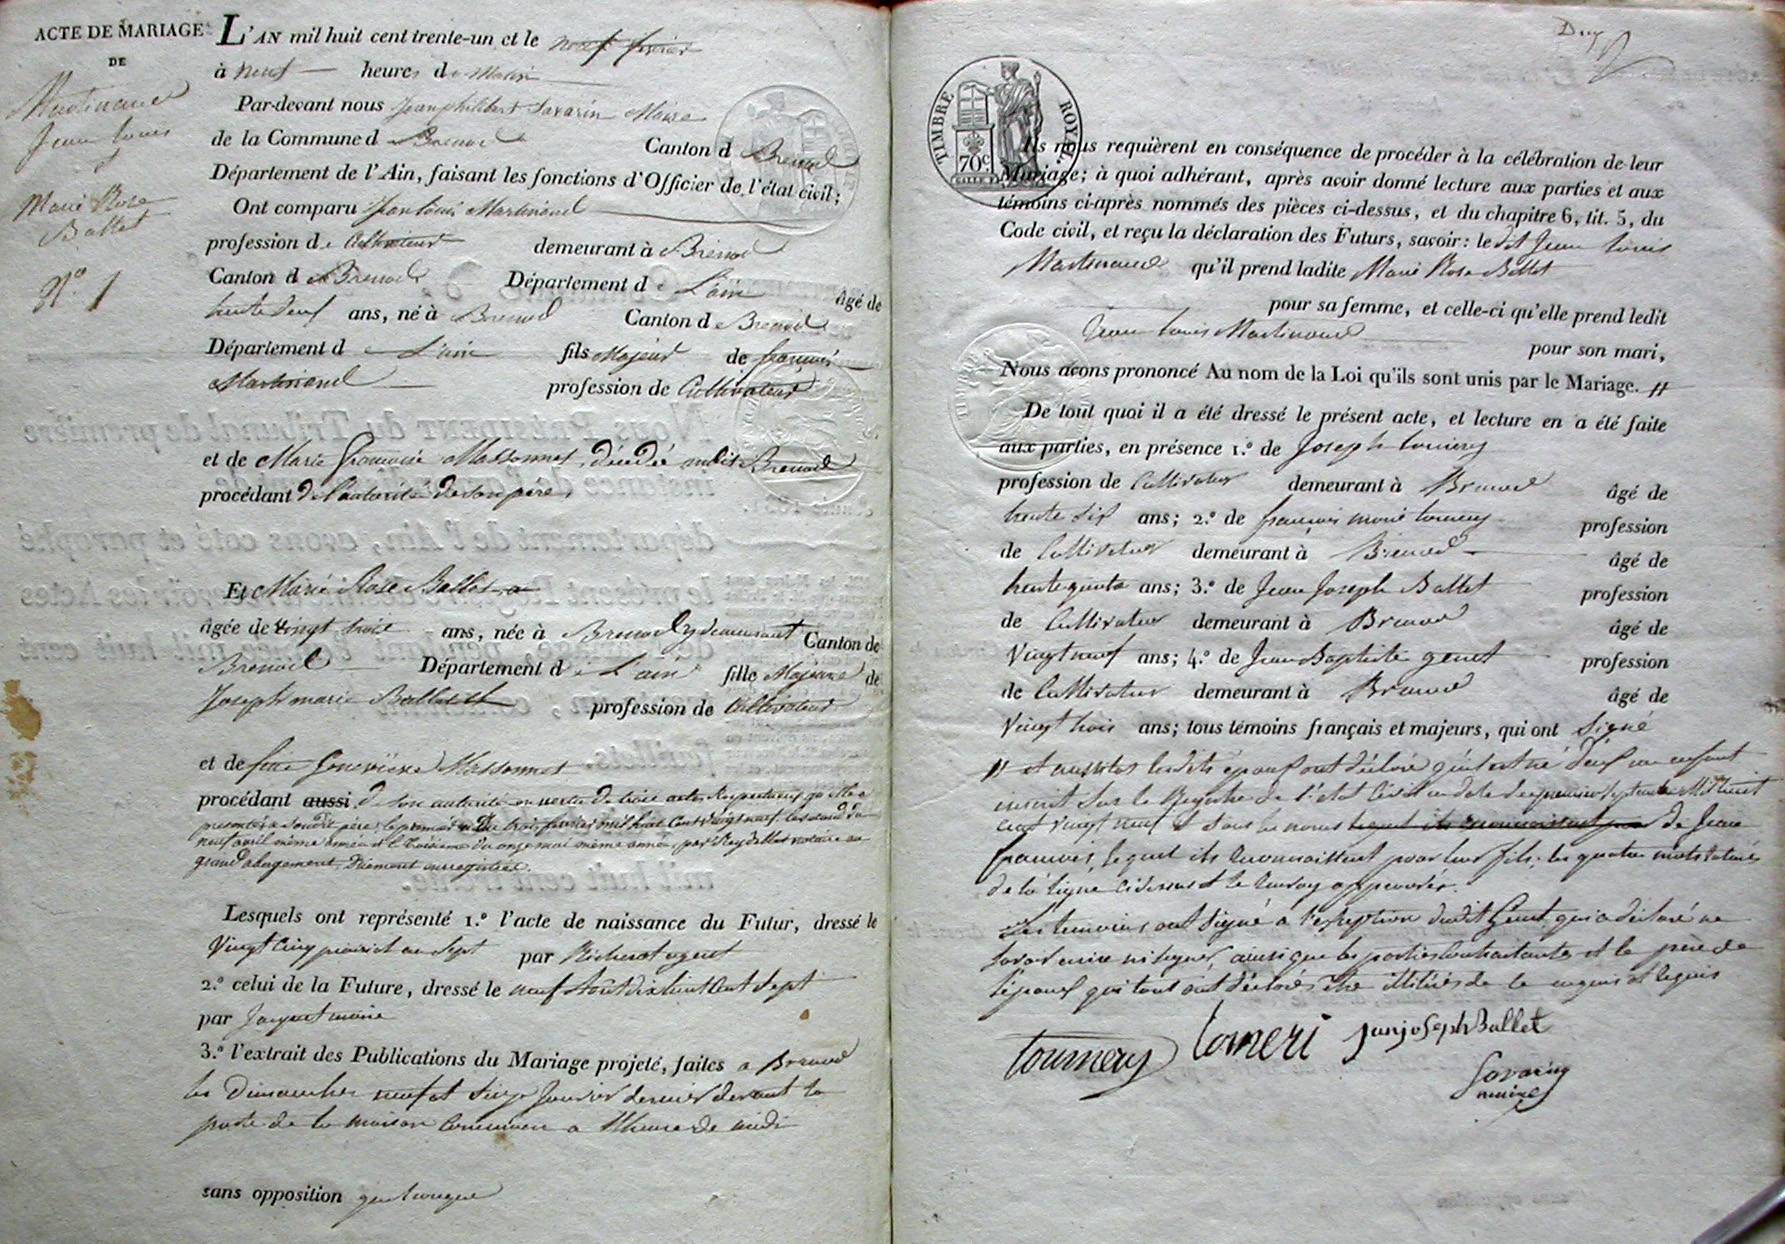 ACTE DE MARIAGE
DE
Martinand
Jean Louis
&
Marie Rose
Ballet
N.º 1
L'AN mil huit cent trente-un et le neuf février
à neuf heures de Matin
Par-devant nous Jean philibert Savarin Maire
de la Commune de Brenod Canton de Brenod
Département de l'Ain, faisant les fonctions d'Officier de l'état civil;
Ont comparu Jean Louis Martinand
profession de Cultivateur demeurant à Brenod
Canton de Brenod Département de L'ain âgé de
trente deux ans, né à Brenod Canton de Brenod
Département de L'ain fils Majeur de françois
Martinand profession de Cultivateur
et de Marie françoise Massonnet, décédée audit Brenod
procédant de l'autorité de son père,
Et Marie Rose Ballet
âgée de vingt trois ans, née à Brenod y demeurant Canton de
Brenod Département de L'ain fille Majeure de
Joseph marie Ballet profession de Cultivateur
et de feue Geneviève Massonnet
procédant aussi de son autorité en vertu de trois actes respectueux qu'elle a
présentés à sondit père; le premier du trois février mil huit cent vingt neuf le second du
neuf avril même année et le troisième du onze mai même année, par Rey Ballet notaire au
grand abergement, duement enregistrés.
Lesquels ont représenté 1.º l'acte de naissance du Futur, dressé le
Vingt cinq prairial an sept par Richerot agent
2.º celui de la Future, dressé le neuf Août dix huit cent sept
par Jacquet maire
3.º l'extrait des Publications du Mariage projeté, faites a Brenod
les Dimanches neuf et seize Janvier dernier devant la
porte de la maison Commune a l'heure de midi
sans opposition quelconque
Deux
TIMBRE ROYAL
70c
Ils nous requièrent en conséquence de procéder à la célébration de leur
Mariage; à quoi adhérant, après avoir donné lecture aux parties et aux
témoins ci-après nommés des pièces ci-dessus, et du chapitre 6, tit. 5, du
Code civil, et reçu la déclaration des Futurs, savoir: le dit Jean Louis
Martinand qu'il prend ladite Marie Rose Ballet
pour sa femme, et celle-ci qu'elle prend ledit
Jean Louis Martinand pour son mari,
Nous avons prononcé Au nom de la Loi qu'ils sont unis par le Mariage. //
De tout quoi il a été dressé le présent acte, et lecture en a été faite
aux parties, en présence 1.º de Joseph tourniery
profession de Cultivateur demeurant à Brenod âgé de
trente six ans; 2.º de françois marie profession
de Cultivateur demeurant à Brenod âgé de
trente quatre ans; 3.º de Jean Joseph Ballet profession
de Cultivateur demeurant à Brenod âgé de
Vingt neuf ans; 4.º de Jean Baptiste genet profession
de Cultivateur demeurant à Brenod âgé de
Vingt trois ans; tous témoins français et majeurs, qui ont Signé
// et aussitôt lesdits époux ont déclaré qu'il est né d'eux un enfant
inscrit sur le Registre de l'état Civil en date du premier septembre Mil huit
cent vingt neuf & sous les noms de Jean
françois, lequel ils reconnaissent pour leur fils; les quatre mots raturés
de la ligne ci dessus & le renvoy approuvés.
Les temoins ont signé a l'exception dudit Genet qui a déclaré ne
savoir ecrire ni signer, ainsi que les parties contractantes et le père de
l'époux qui tout ont déclarés être illitérés de ce enquis et requis
tournery tourneri Janjoseph Ballet
Savarin
maire